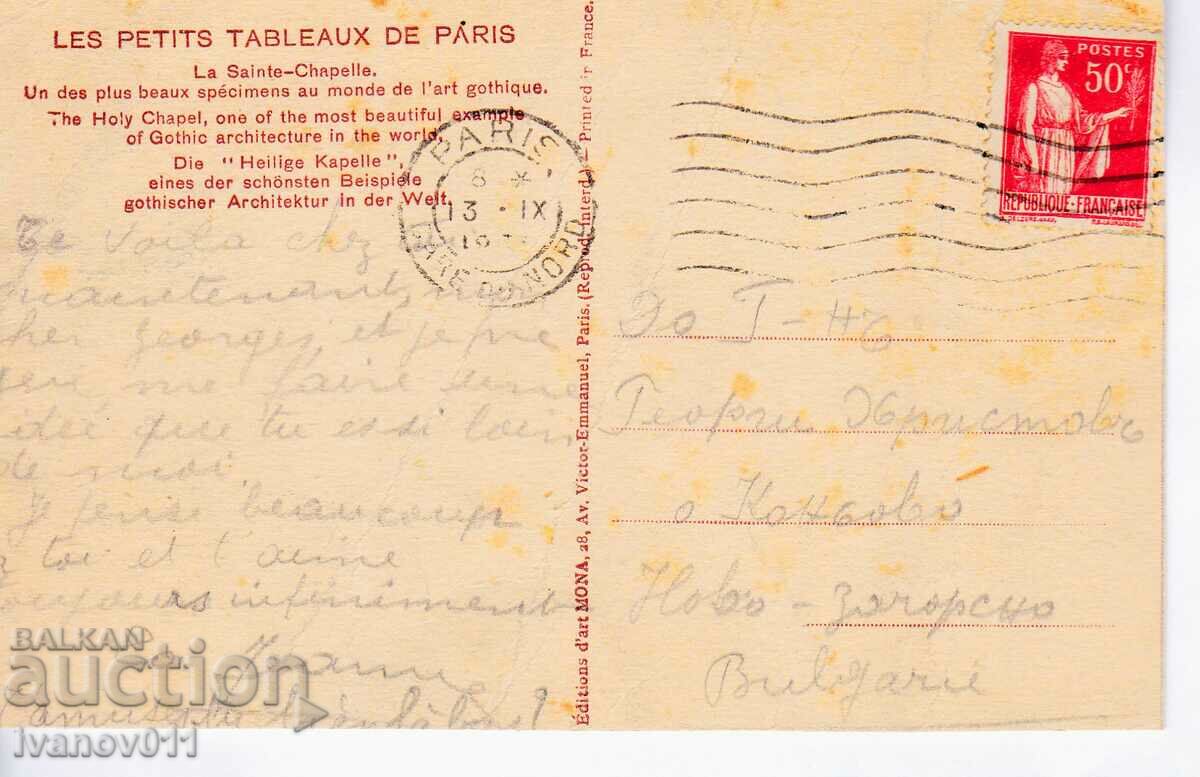 LES PETITS TABLEAUX DE PARIS
La Sainte-Chapelle.
Un des plus beaux spécimens au monde de l'art gothique.
The Holy Chapel, one of the most beautiful example
of Gothic architecture in the world.
Die "Heilige Kapelle",
eines der schönsten Beispiele
gothischer Architektur in der Welt.
Te voilà chez
maintenant,
cher Georges, et je ne
me faire une
idée que tu es si loin
de moi.
Je pense beaucoup
toi et t'aime
toujours infiniment
Éditions d'art MONA, 28, Av. Victor-Emmanuel, Paris. (Reprod. interd.) - Printed in France.
PARIS
8 *
13 · IX
GARE DU NORD
POSTES
50c
REPUBLIQUE-FRANÇAISE
До Г-нъ
Георги Христовъ
с Коньово
Ново-Загорско
Bulgarie
BALKAN
auction
ivanov011